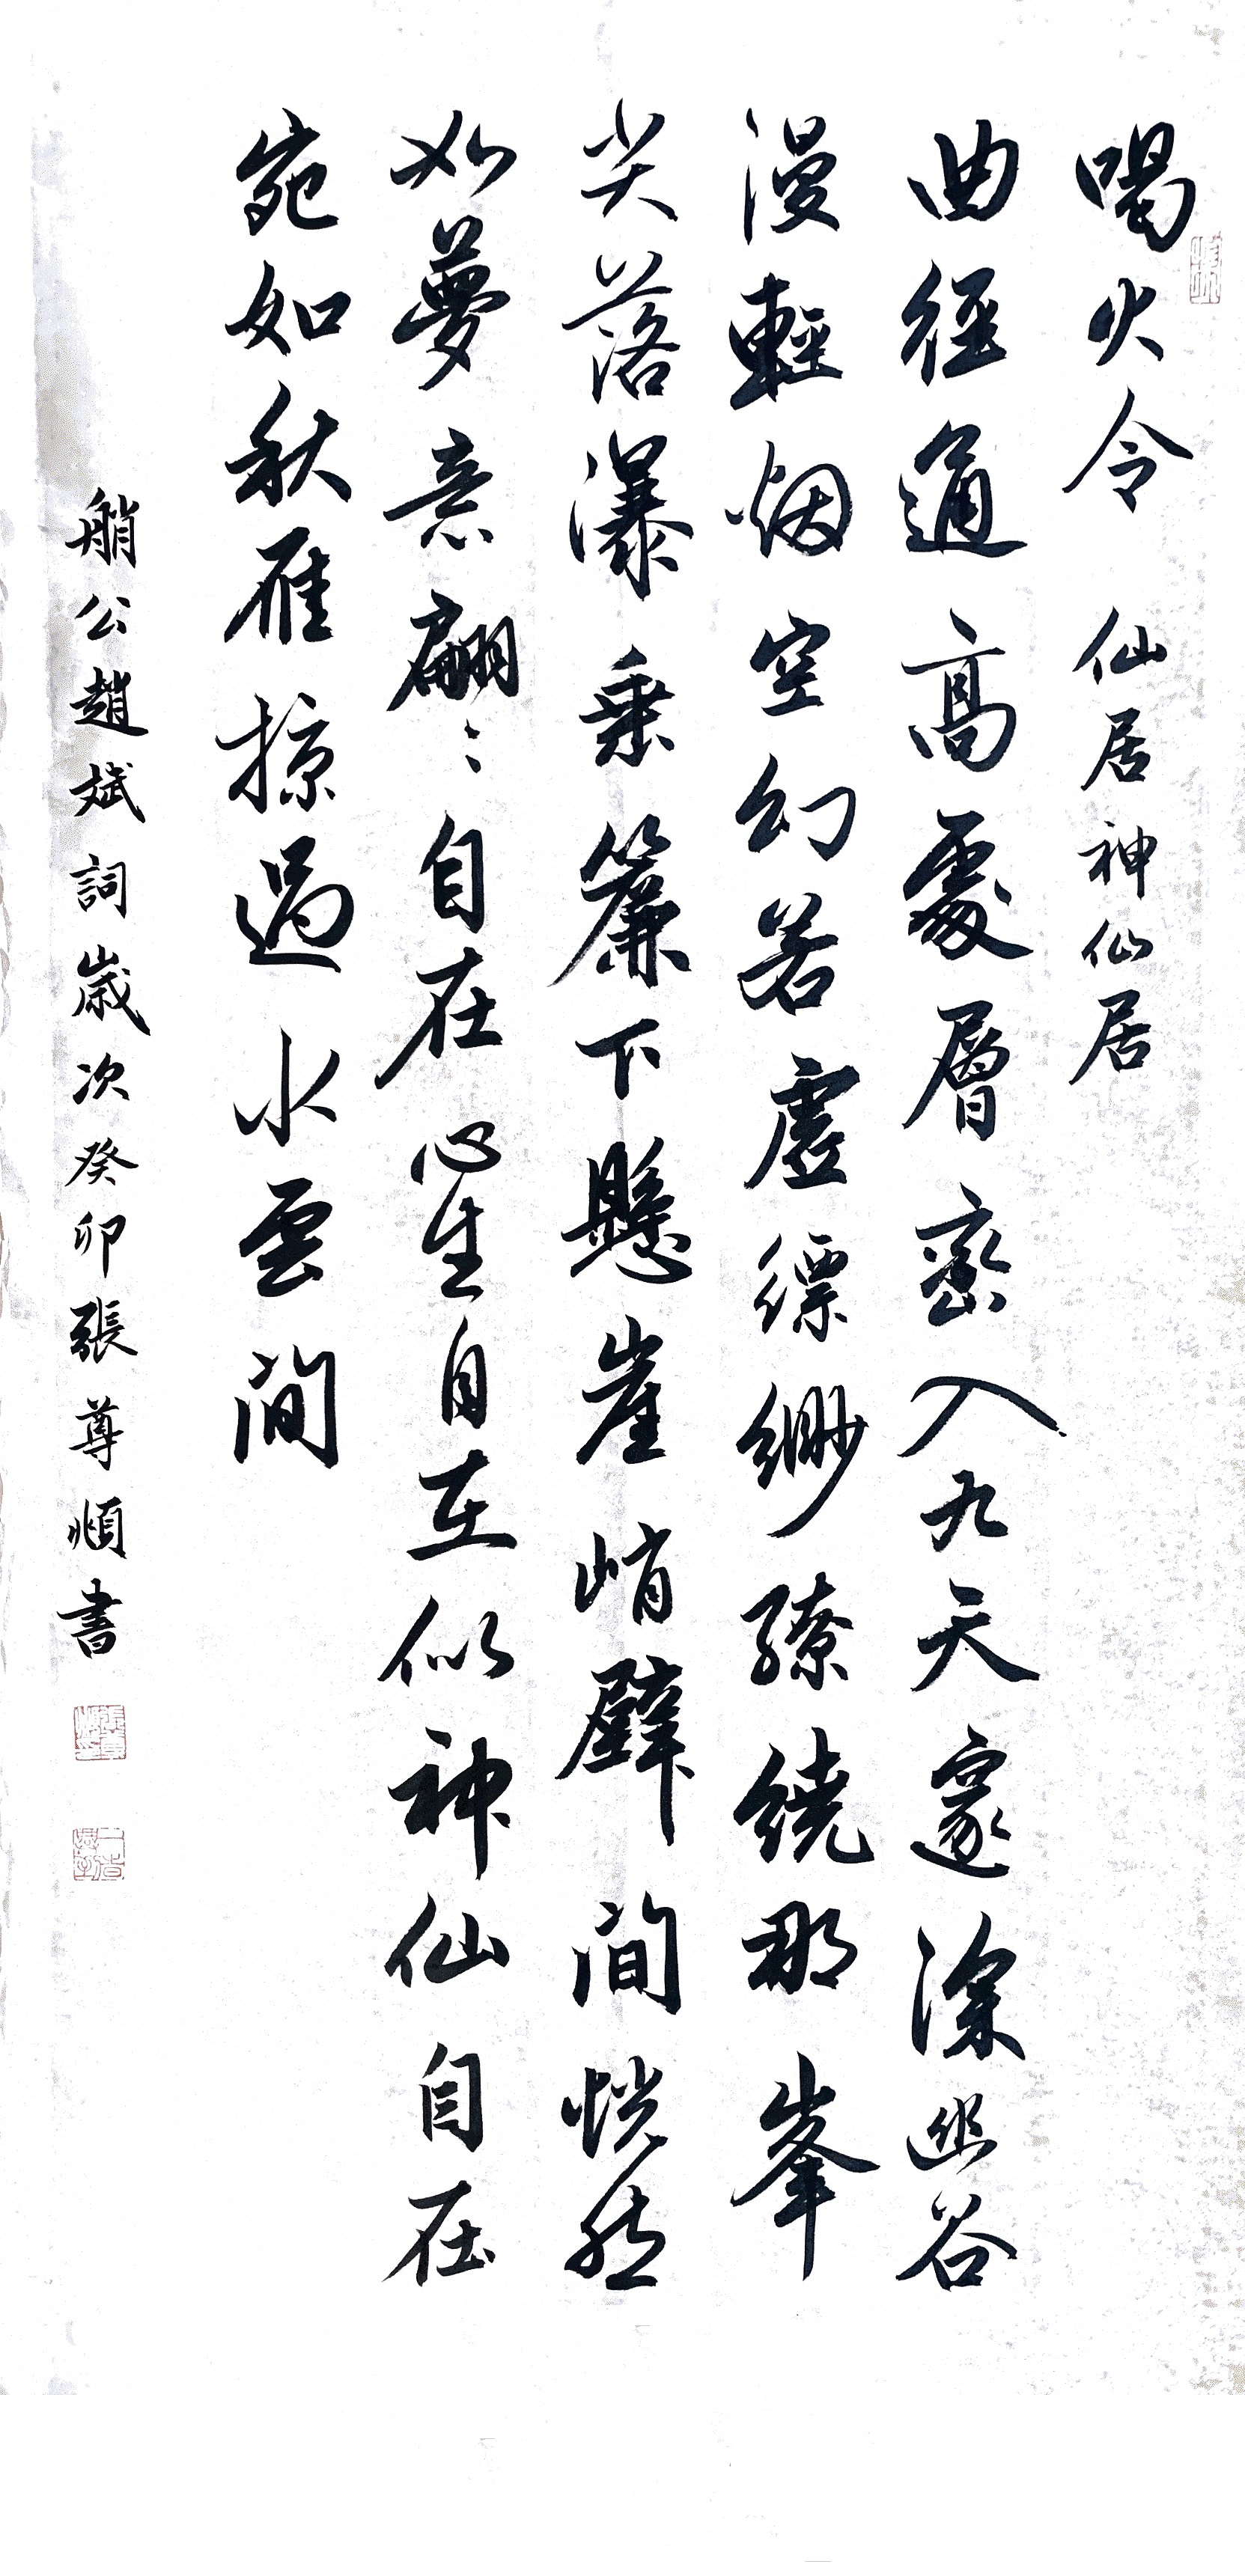 喝火令 仙居神仙居
曲径通高處層巒入九天邃深幽谷
漫輕烟空幻若虛縹緲繚繞那峯
尖落瀑垂簾下懸崖峭壁間恍然
如夢意翩〻自在心生自在似神仙自在
宛如秋雁掠過水雲間
艄公趙斌詞歲次癸卯張尊順書